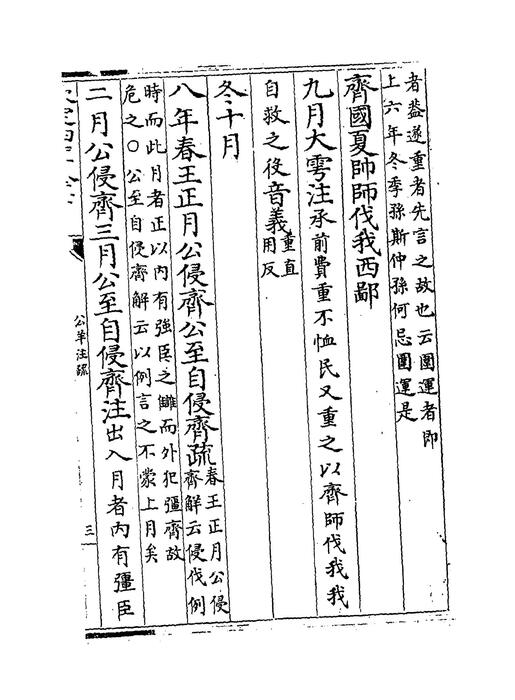 者葢遂重者先言之故也云圍運者即
上六年冬季孫斯仲孫何忌圍運是
齊國夏帥師伐我西鄙
九月大雩注承前費重不恤民又重之以齊師伐我我
自救之役音義重直
用反
冬十月
八年春王正月公侵齊公至自侵齊疏春王正月公侵
齊解云侵伐例
時而此月者正以内有強臣之讎而外犯彊齊故
危之〇公至自侵齊解云以例言之不蒙上月矣
二月公侵齊三月公至自侵齊注出入月者内有彊臣
公羊注疏
三